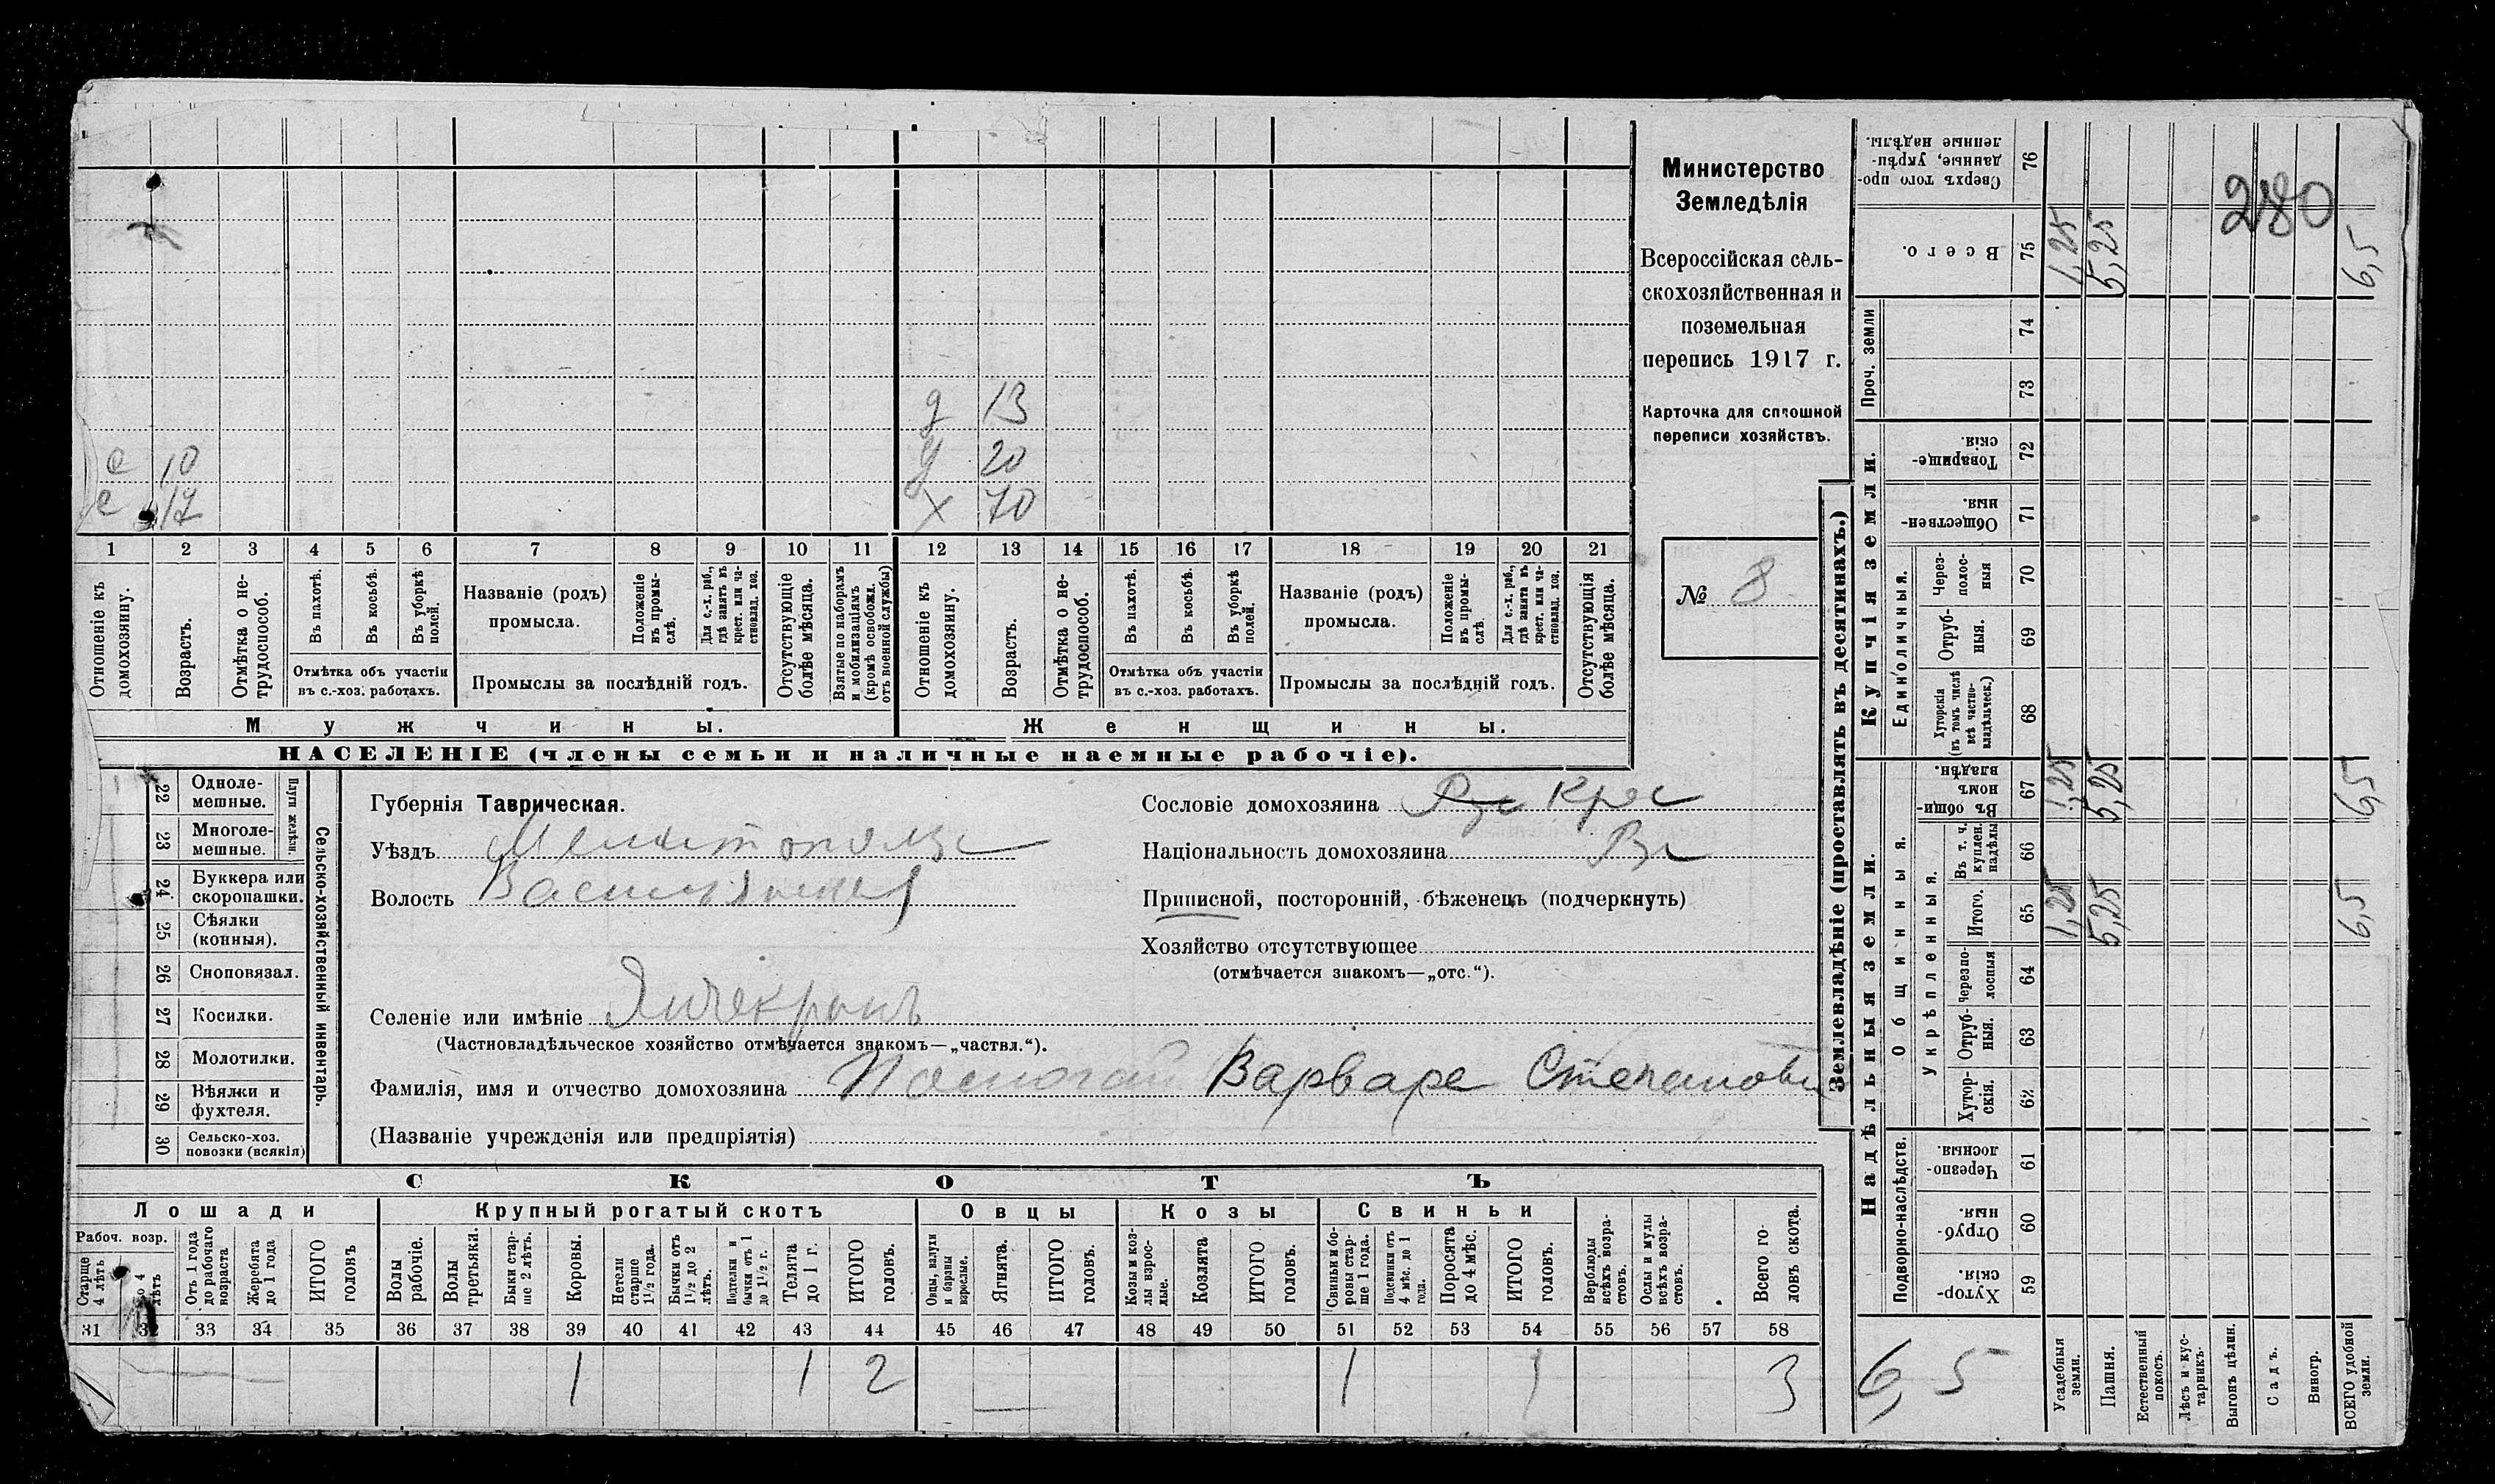 Министерство
Земледѣлія
Всероссійская сель-
скохозяйственная и
поземельная
перепись 1917 г.
Карточка для сплошной
переписи хозяйствъ.
№ 8
280
д 13
е 10 20
е 17 х 70
1 2 3 4 5 6 7 8 9 10 11 12 13 14 15 16 17 18 19 20 21
Отношеніе къ домохозяину.
Возрастъ.
Отмѣтка о не-трудоспособ.
Въ пахотѣ.
Въ косьбѣ.
Въ уборкѣ полей.
Отмѣтка объ участіи
въ с.-хоз. работахъ.
Названіе (родъ)
промысла.
Положеніе въ промы-слѣ.
Для с.-х. раб., гдѣ занятъ въ крест. или ча-стновлад. хоз.
Промыслы за послѣдній годъ.
Отсутствующіе болѣе мѣсяца.
Взятые по наборамъ и мобилизаціямъ (кромѣ освобожд. отъ военной службы)
Отношеніе къ домохозяину.
Возрастъ.
Отмѣтка о не-трудоспособ.
Въ пахотѣ.
Въ косьбѣ.
Въ уборкѣ полей.
Отмѣтка объ участіи
въ с.-хоз. работахъ.
Названіе (родъ)
промысла.
Положеніе въ промы-слѣ.
Для с.-х. раб., гдѣ занята въ крест. или ча-стновлад. хоз.
Промыслы за послѣдній годъ.
Отсутствующія болѣе мѣсяца.
Мужчины.
Женщины.
НАСЕЛЕНІЕ (члены семьи и наличные наемные рабочіе).
22 Одноле-мешные.
23 Многоле-мешные.
Плуги желѣзн.
24 Буккера или скоропашки.
25 Сѣялки (конныя).
26 Сноповязал.
27 Косилки.
28 Молотилки.
29 Вѣялки и фухтеля.
30 Сельско-хоз. повозки (всякія)
Сельско-хозяйственный инвентарь.
Губернія Таврическая.
Уѣздъ
Волость
Селеніе или имѣніе
(Частновладѣльческое хозяйство отмѣчается знакомъ—„частвл.“).
Фамилія, имя и отчество домохозяина Варваре
(Названіе учрежденія или предпріятія)
Сословіе домохозяина Крес
Національность домохозяина
Приписной, посторонній, бѣженецъ (подчеркнуть)
Хозяйство отсутствующее
(отмѣчается знакомъ—„отс.“).
СКОТЪ
Лошади
Крупный рогатый скотъ
Овцы
Козы
Свиньи
Рабоч. возр.
Старше 4 лѣтъ
До 4 лѣтъ
Отъ 1 года до рабочаго возраста
Жеребята до 1 года
ИТОГО головъ
Волы рабочіе.
Волы третьяки.
Быки стар-ше 2 лѣтъ.
Коровы.
Нетели старше 1½ года.
Бычки отъ 1½ до 2 лѣтъ.
Подтелки и бычки отъ 1 до 1½ г.
Телята до 1 г.
ИТОГО головъ.
Овцы, валухи и бараны взрослые.
Ягнята.
ИТОГО головъ.
Козы и коз-лы взрос-лые.
Козлята
ИТОГО головъ.
Свиньи и бо-ровы стар-ше 1 года.
Подсвинки отъ 4 мѣс. до 1 года.
Поросята до 4 мѣс.
ИТОГО головъ.
Верблюды всѣхъ возра-стовъ.
Ослы и мулы всѣхъ возра-стовъ.
Всего го-ловъ скота.
31 32 33 34 35 36 37 38 39 40 41 42 43 44 45 46 47 48 49 50 51 52 53 54 55 56 57 58
1 1 2 1 1 3
Землевладѣніе (проставлять въ десятинахъ.)
Купчія земли.
Надѣльныя земли.
Сверхъ того про-данные, укрѣп-ленные надѣлы. 76
Всего. 75 1,25 5,25 6,5
Проч. земли
74
73
Товарище-скія. 72
Обществен-ныя. 71
Единоличныя.
Через-полос-ныя 70
Отруб-ныя. 69
Хуторскія (въ томъ числѣ всѣ частно-владѣльческ.) 68
Общинныя.
Въ общин-номъ владѣн. 67 1,25 5,25 6,5
Укрѣпленныя.
Въ т. ч. куплен. надѣлы 66
Итого. 65 1,25 5,25 6,5
Черезпо-лосныя 64
Отруб-ныя. 63
Хутор-скія. 62
Подворно-наслѣдств.
Черезпо-лосныя. 61
Отруб-ныя. 60
Хутор-скія. 59
6,5
Усадебныя земли.
Пашня.
Естественный покосъ.
Лѣсъ и кус-тарникъ.
Выгонъ цѣлин.
Садъ.
Виногр.
ВСЕГО удобной земли.